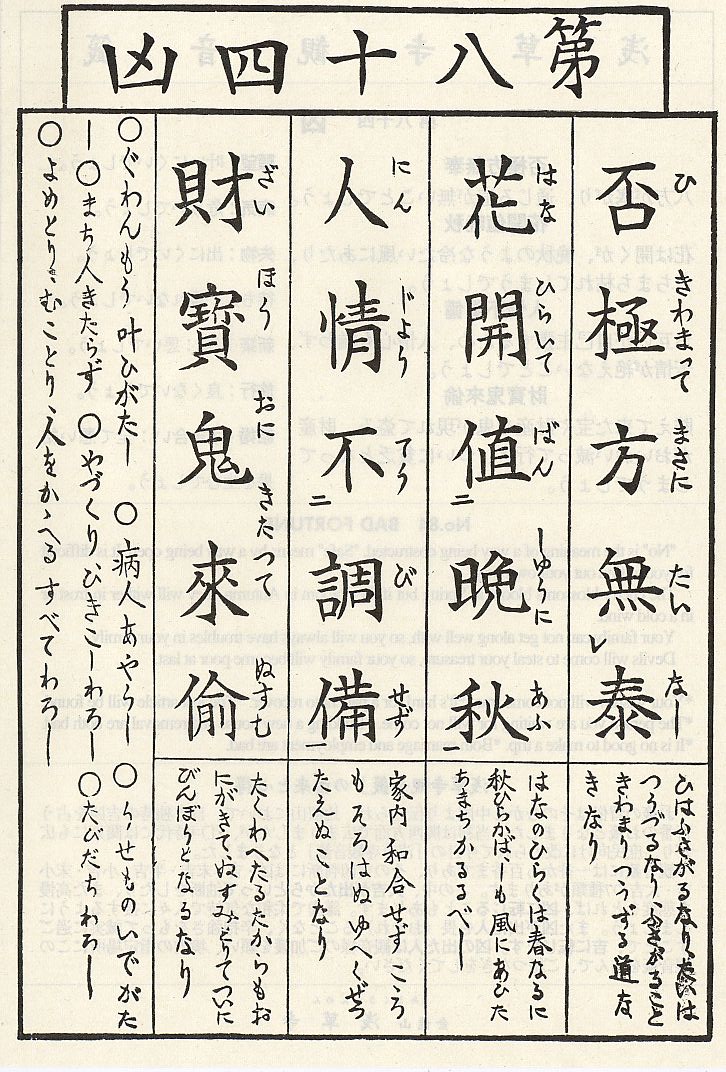 第八十四凶
否極方無レ泰
ひ きわまつて まさに たいなし
ひはふさがるなり、たひは
つうずるなり、ふさがること
きわまりつうずる道な
きなり
芲開値二晩秋一
はな ひらいて ばん しゆうに あふ
はなのひらくは春なるに
秋ひらかば、も風にあひた
ちまちかるゝべし
人情不二調備一
にん じよう てう び せず
家内和合せずこころ
もそろはぬゆへくぜつ
たえぬことなり
財寶鬼來偷
ざい ほう おに きたつて ぬすむ
たくわへたるたからもお
にがきてぬすみとりてついに
びんぼうとなるなり
○ぐわんもう叶ひがたし ○病人あやうし ○うせものいでがた
し ○まち人きたらず ○やづくり、ひきこしわろし ○たびだちわろし
○よめとり、むことり、人をかゝへるすべてわろし